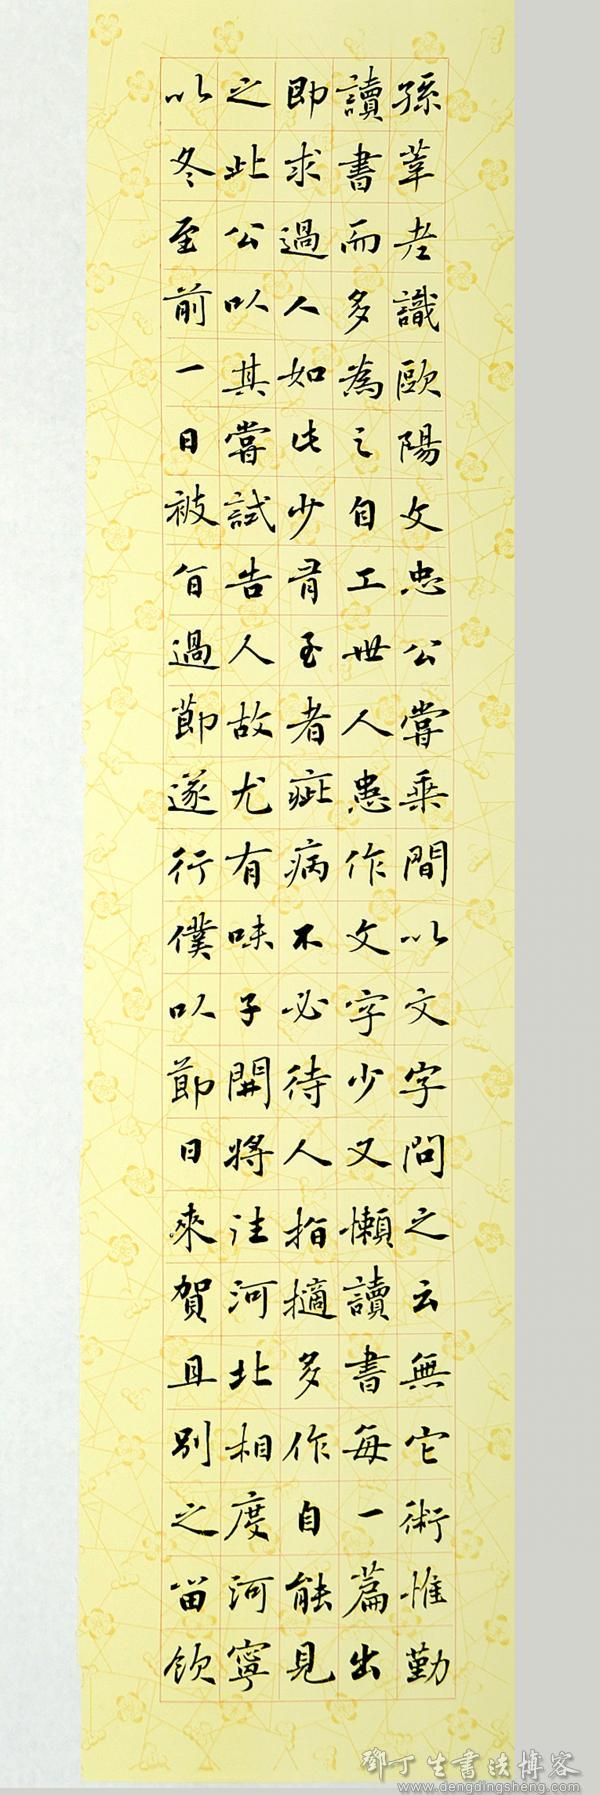 孫莘老識歐陽文忠公嘗乗間以文字問之云無它術惟勤
讀書而多為之自工世人患作文字少又懶讀書每一篇出
即求過人如此少有至者疵病不必待人指擿多作自能見
之此公以其嘗試告人故尤有味子開將往河北相度河寧
以冬至前一日被旨過節遂行僕以節日來賀且別之留飲
鄧丁生書法博客
www.dengdingsheng.com